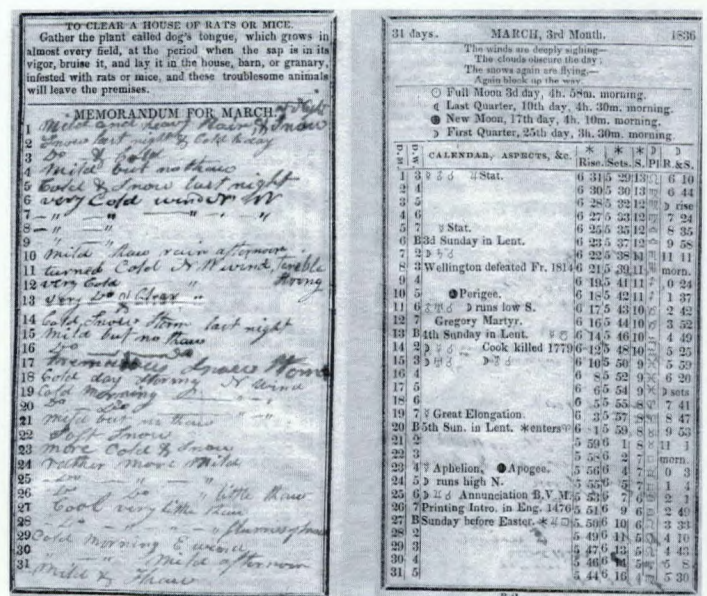 TO CLEAR A HOUSE OF RATS OR MICE.
Gather the plant called dog's tongue, which grows in
almost every field, at the period when the sap is in its
vigor, bruise it, and lay it in the house, barn, or granary,
infested with rats or mice, and these troublesome animals
will leave the premises.
MEMORANDUM FOR MARCH.
1 Mild and heavy Rain & Snow
2 Snow last night & Cold to day
3 Do & Cold
4 Mild but no thaw
5 Cold & Snow last night
6 very Cold wind N W
7 - " - " - " - "
8 - " - "
9 - " - "
10 Mild thaw rain afternoon
11 turned Cold N W wind, terible
12 very Cold strong
13 very Do & Clear "
14 Cold Snow Storm last night
15 Mild but no thaw
16 Do Do
17 Tremendous Snow Storm
18 Cold day Storming N wind
19 Cold morning " "
20 Do Do
21 mild but no thaw
22 Soft Snow
23 more Cold & Snow
24 rather more Mild
25
26 Do Do " little thaw
27 Cool very little thaw
28
29 Cold morning E wind
30 Mild afternoon
31 Mild & Thaw
31 days. MARCH, 3rd Month. 1836
The winds are deeply sighing—
The clouds obscure the day;
The snows again are flying,—
Again block up the way.
Full Moon 3d day, 4h. 58m. morning.
Last Quarter, 10th day, 4h. 30m. morning.
New Moon, 17th day, 4h. 10m. morning.
First Quarter, 25th day, 3h. 30m. morning.
D.M. D.W. CALENDAR, ASPECTS, &c. Rise. Sets. S. Pl R.& S.
1 3 Stat. 6 31 5 29 13 6 10
2 4 6 30 5 30 13 6 44
3 5 6 28 5 32 12 rise
4 6 6 27 5 33 12 7 24
5 7 Stat. 6 25 5 35 12 8 35
6 B 3d Sunday in Lent. 6 23 5 37 12 9 58
7 2 6 22 5 38 11 11 11
8 3 Wellington defeated Fr. 1814 6 21 5 39 11 morn.
9 4 6 19 5 41 11 0 24
10 5 Perigee. 6 18 5 42 11 1 37
11 6 runs low S. 6 17 5 43 10 2 42
12 7 Gregory Martyr. 6 16 5 44 10 3 52
13 B 4th Sunday in Lent. 6 14 5 46 10 4 49
14 2 Cook killed 1779 6 12 5 48 10 5 25
15 3 6 10 5 50 9 5 59
16 4 6 8 5 52 9 6 20
17 5 6 6 5 54 9 sets
18 6 6 5 5 55 8 7 41
19 7 Great Elongation. 6 3 5 57 8 8 47
20 B 5th Sun. in Lent. enters 6 1 5 59 8 9 53
21 2 5 59 6 1 8 11 1
22 3 5 58 6 2 7 morn.
23 4 Aphelion, Apogee. 5 56 6 4 7 0 3
24 5 runs high N. 5 55 6 5 7 1 4
25 6 Annunciation B.V.M. 5 53 6 7 6 2 1
26 7 Printing Intro. in Eng. 1476 5 51 6 9 6 2 49
27 B Sunday before Easter. 5 50 6 10 6 3 33
28 2 5 49 6 11 5 4 10
29 3 5 47 6 13 5 4 43
30 4 5 46 6 14 5 8
31 5 5 44 6 16 4 5 30